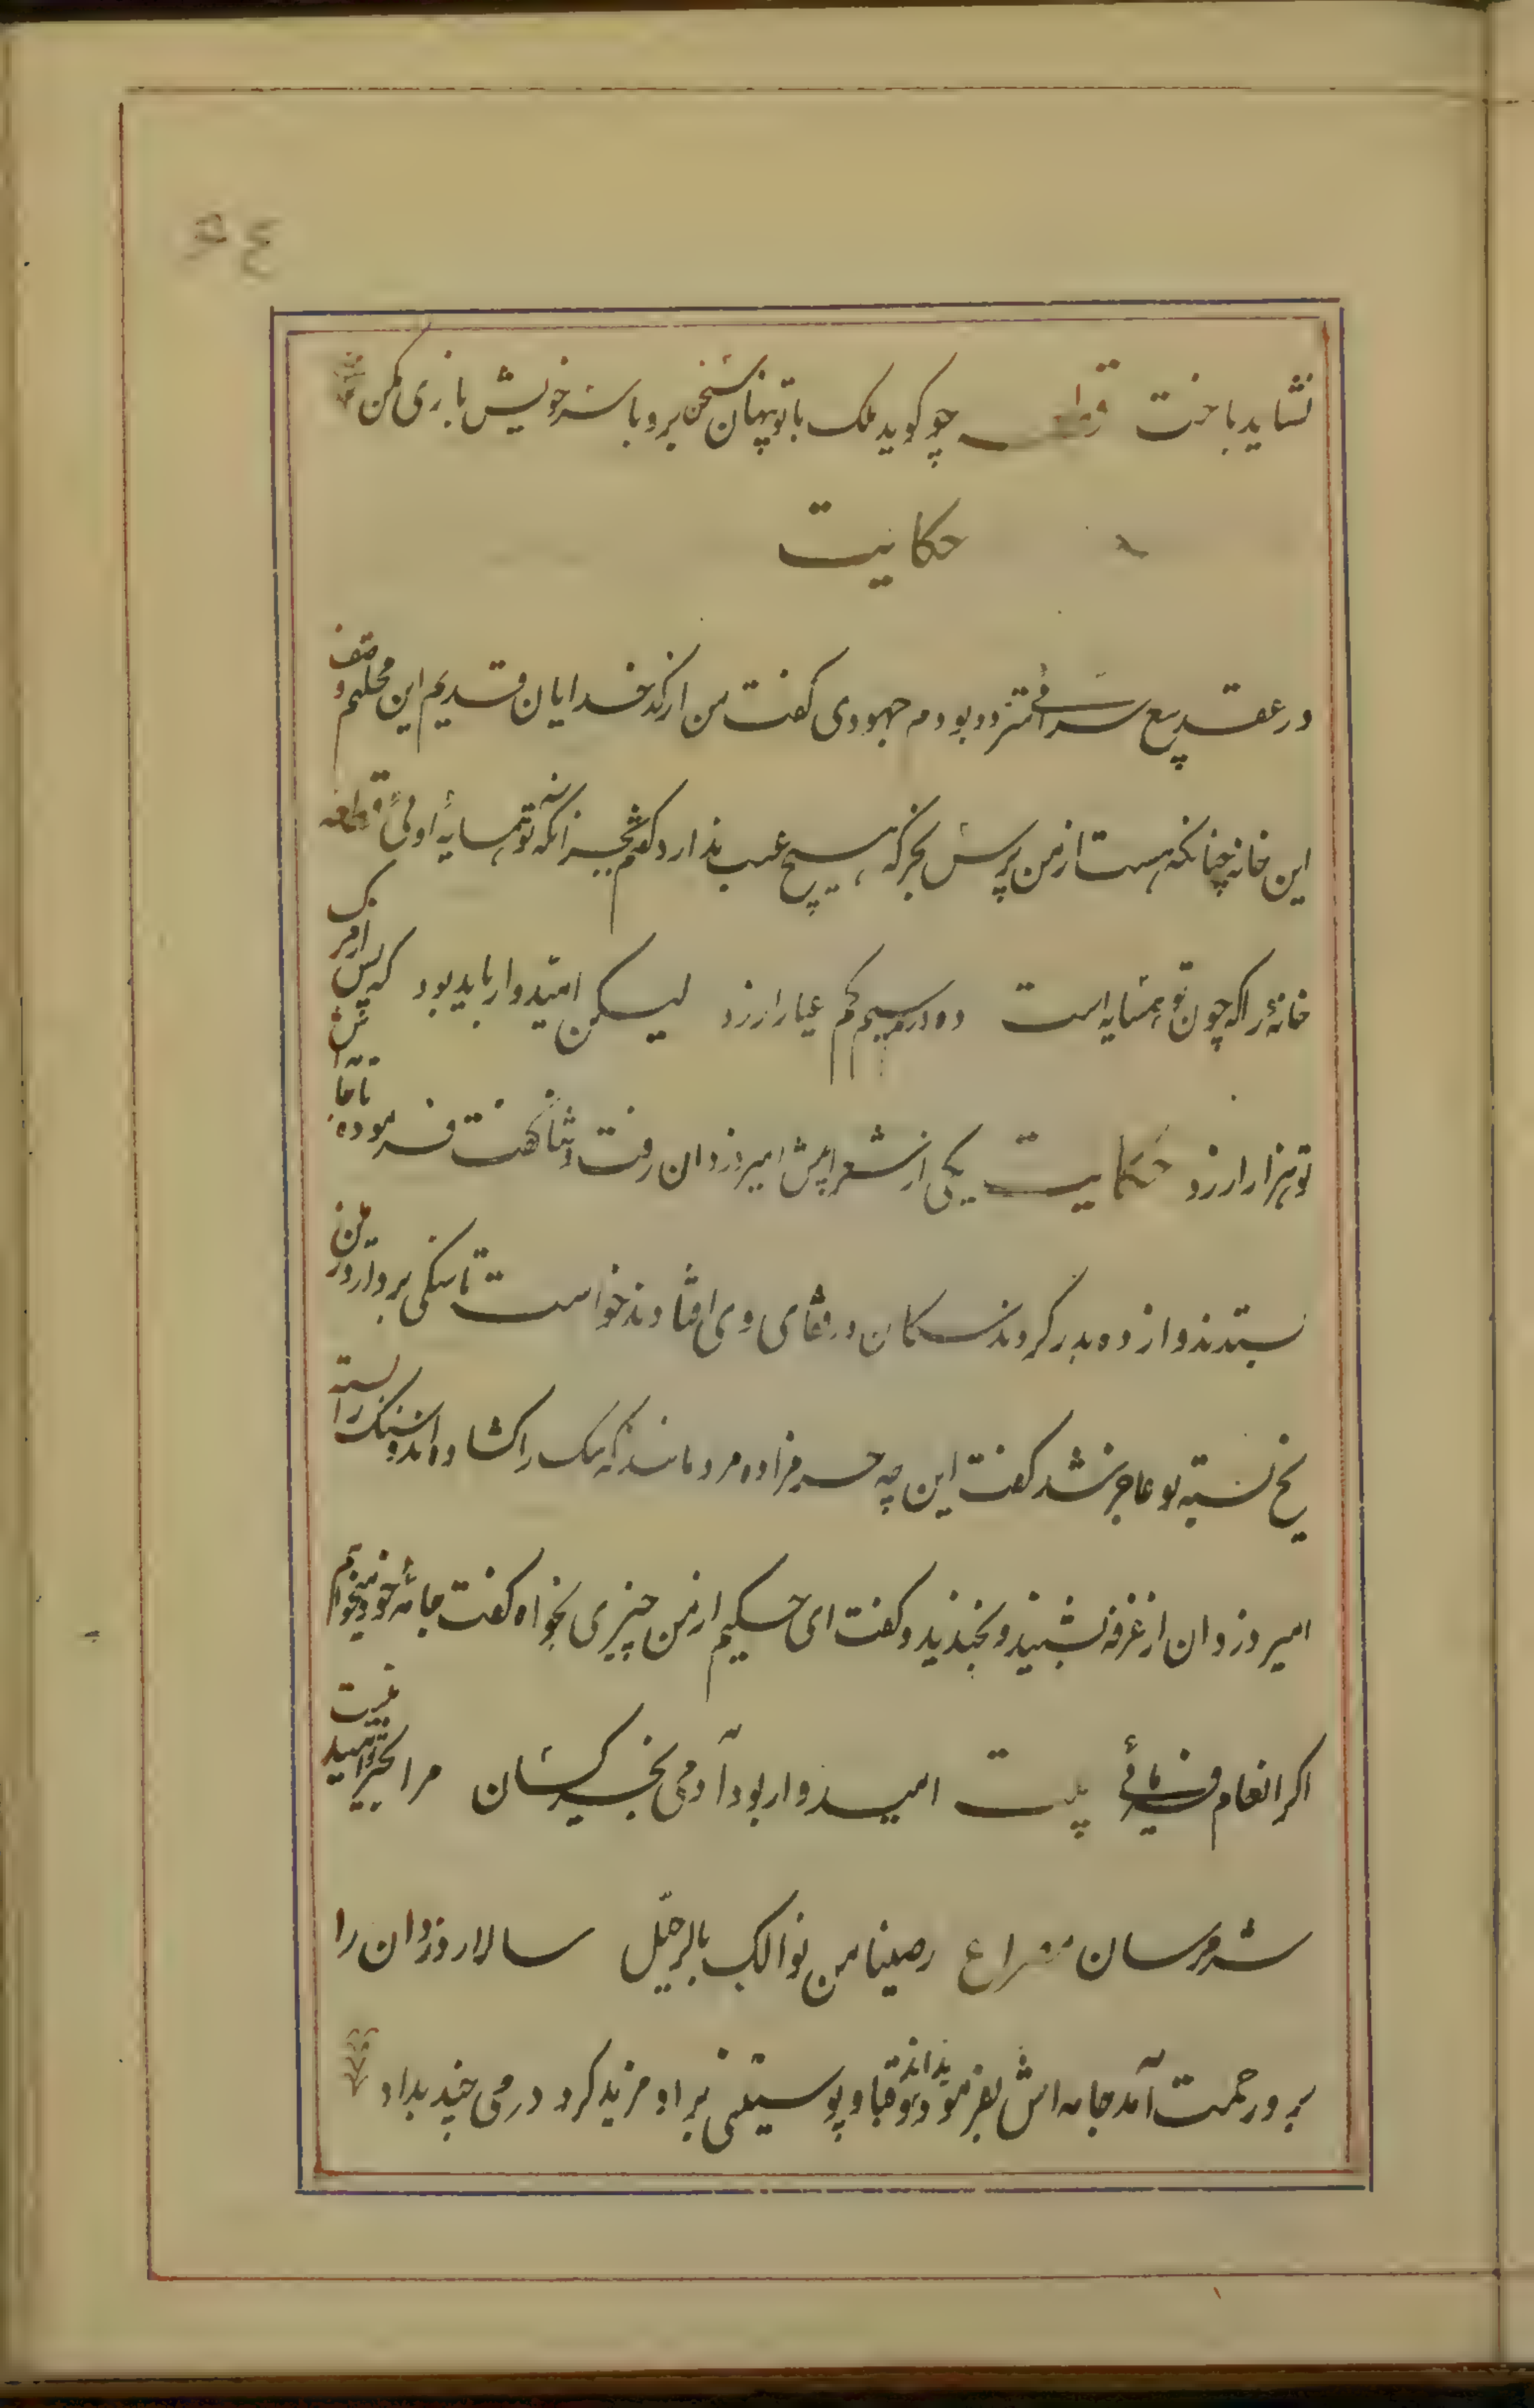 ۶٤
نشاید باخت قطعه چو کوید ملک با تو پنهان سخن برو با سر خویش بازی مکن
حکایت
در عقد بیع سرائی متردد بودم جهودی کفت من از کدخدایان قدیم این محلهم وصف
این خانه چنانکه هست از من پرس بخر که هیچ عیب ندارد کفتم بجز انکه تو همسایهٔ اوئی قطعه
خانهٔ را که چون تو همسایه است ده درم سیم کم عیار ارزد لیکن امیدوار باید بود که پس از مرک
تو هزار ارزد حکایت یکی از شعرا پیش امیر دزدان رفت و ثنا کفت فرمود تا جامه اش
بستدند و از ده بدر کردند سکان در قفای وی افتادند خواست تا سنکی بردارد زمین
یخ بسته بود عاجز شد کفت این چه حرامزاده مردمانند که سک را کشاده اند و سنک را بسته
امیر دزدان از غرفه بشنید و بخندید و کفت ای حکیم از من چیزی بخواه کفت جامهٔ خود میخواهم
اکر انعام فرمائی بیت امیدوار بود آدمی بخیر کسان مرا بخیر تو امید نیست
شر مرسان مصراع رضینا من نوالک بالرحیل سالار دزدان را
برو رحمت آمد جامه اش بفرمود بدادند و قبا و پوستینی بر او مزید کرد درمی چند بداد